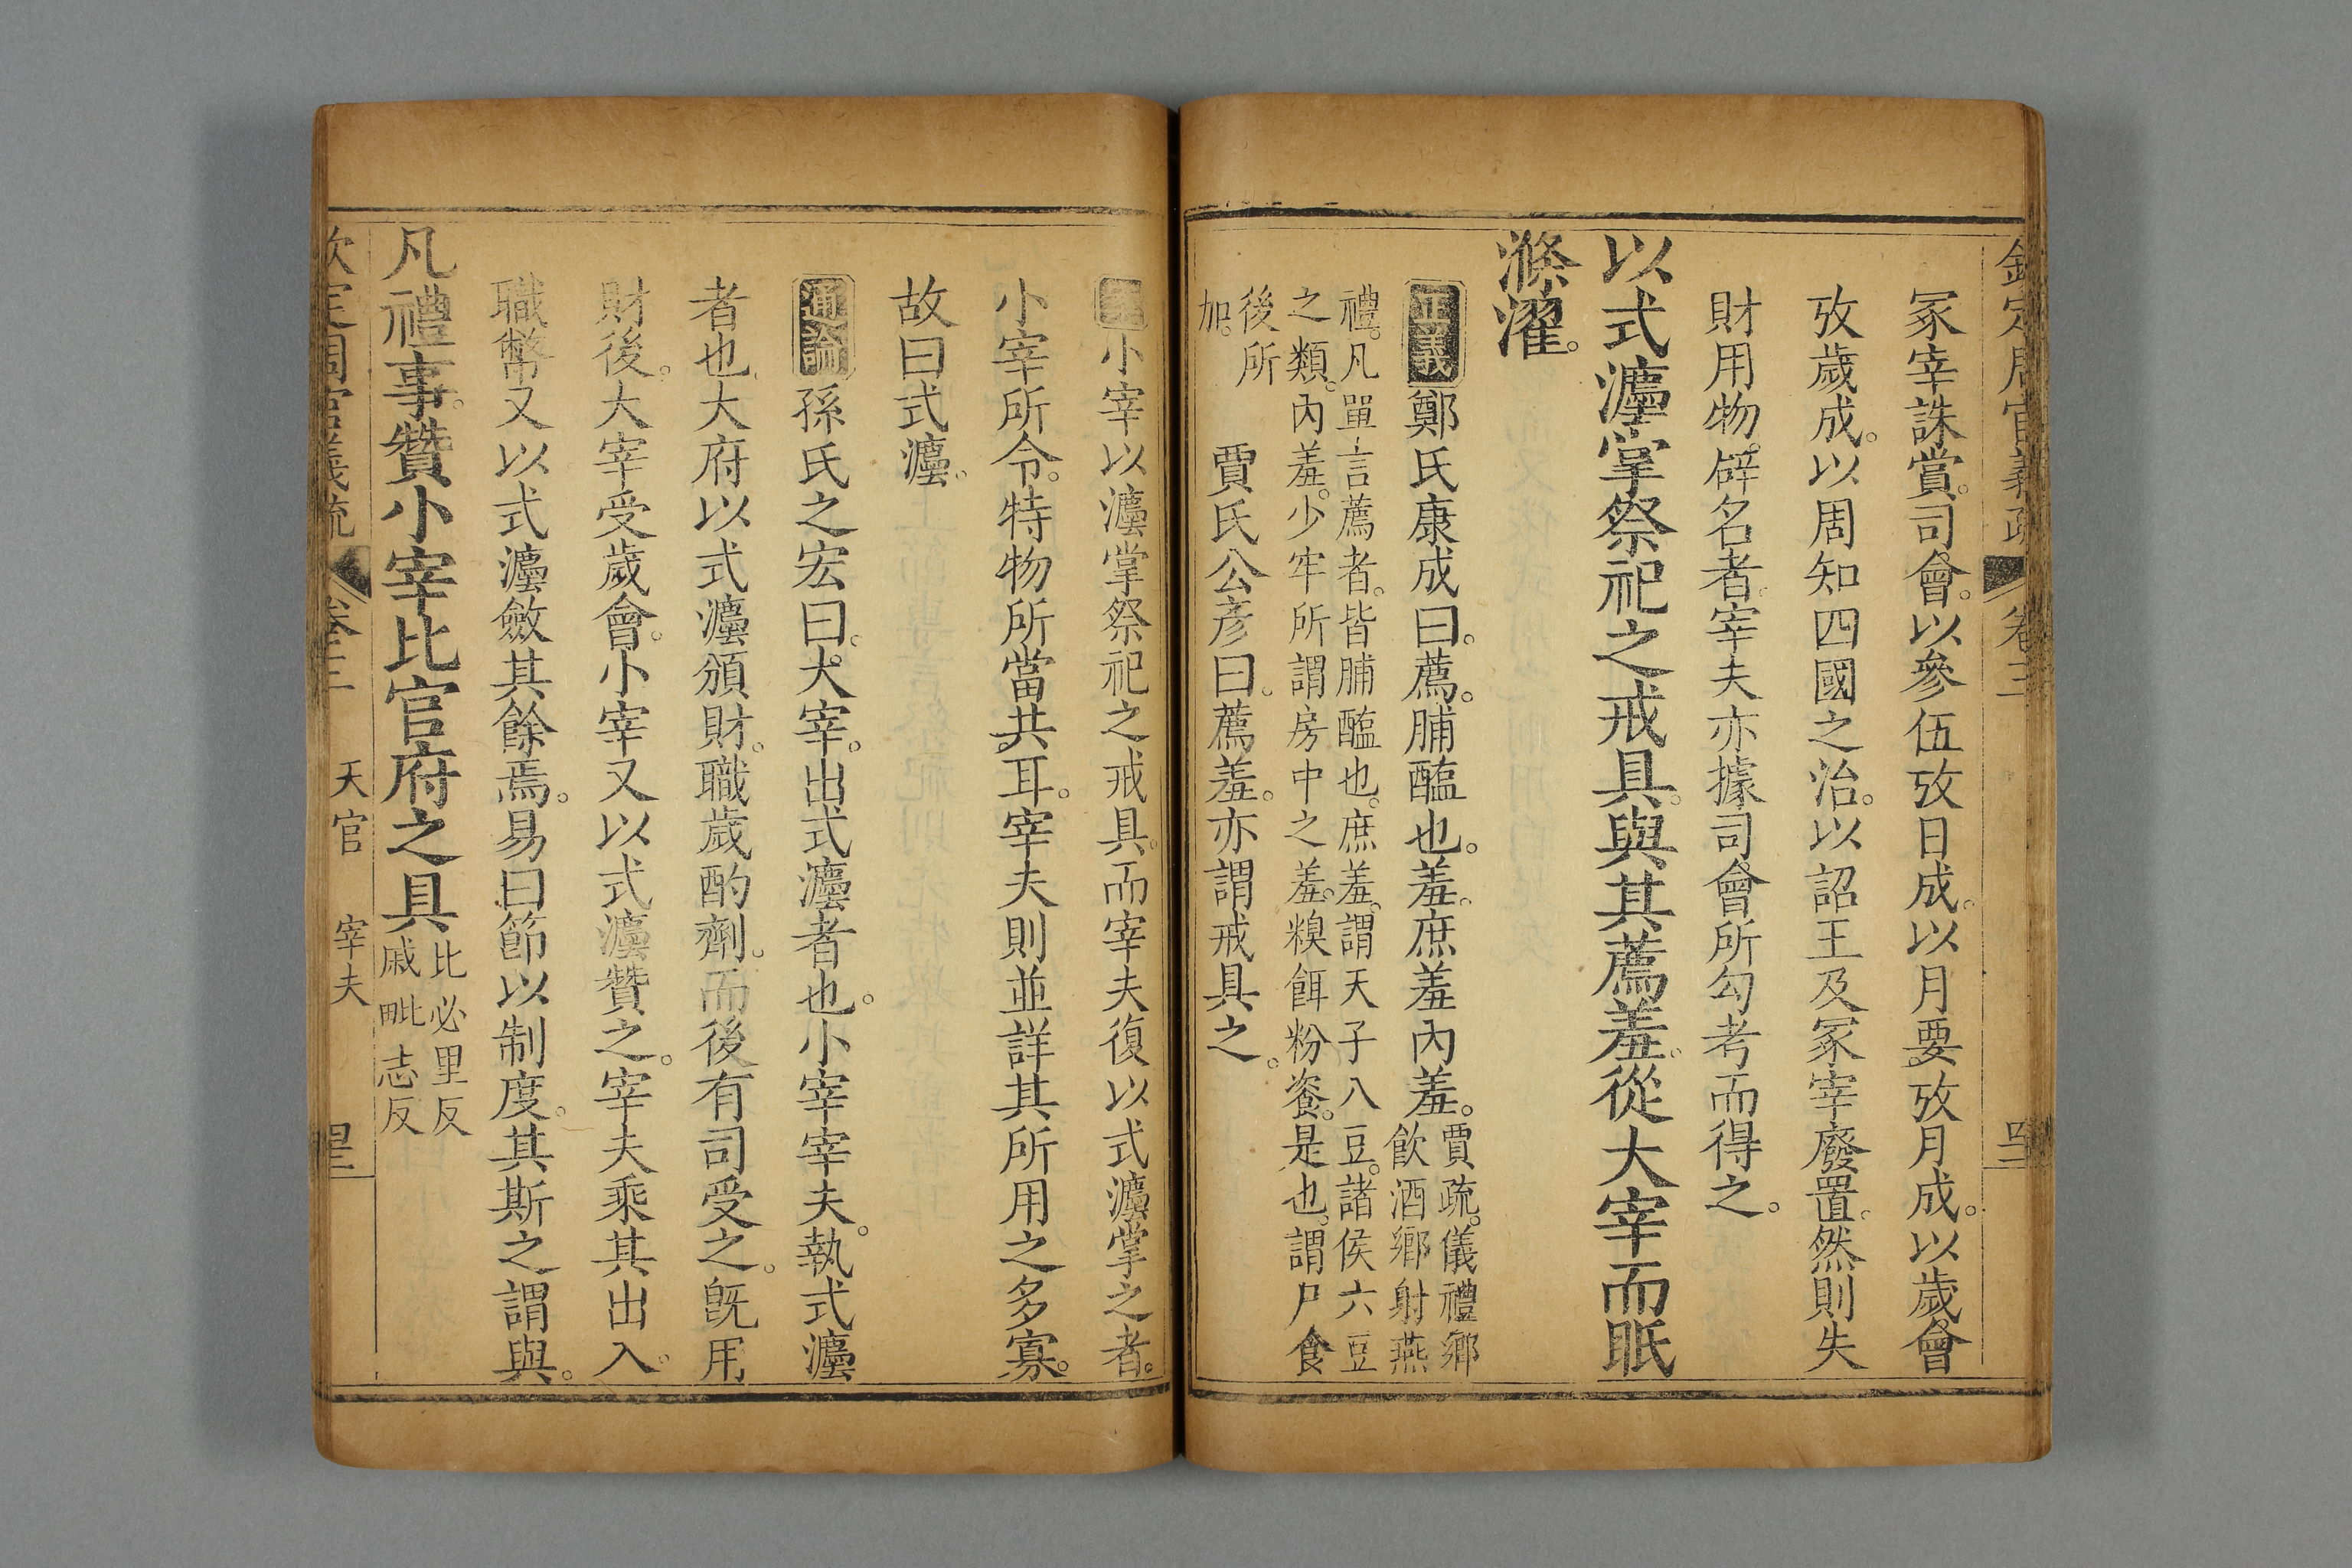 欽定周官義疏 卷三
冢宰誅賞。司會。以參伍攷日成。以月要攷月成。以歲會
攷歲成。以周知四國之治。以詔王及冢宰廢置。然則失
財用物。辟名者。宰夫亦據司會所勾考而得之。
以式灋掌祭祀之戒具。與其薦羞。從大宰而眂
滌濯。
正義 鄭氏康成曰。薦。脯醢也。羞。庶羞內羞。
賈疏。儀禮鄉
飲酒鄉射燕
禮。凡單言薦者。皆脯醢也。庶羞。謂天子八豆。諸侯六豆
之類。內羞。少牢所謂房中之羞。糗餌粉餈。是也。謂尸食
後所
加。
賈氏公彦曰。薦羞。亦謂戒具之。
小宰以灋掌祭祀之戒具。而宰夫復以式灋掌之者。
小宰所令。特物所當共耳。宰夫則並詳其所用之多寡。
故曰式灋。
通論 孫氏之宏曰。大宰。出式灋者也。小宰宰夫。執式灋
者也。大府以式灋頒財。職歲酌劑。而後有司受之。旣用
財後。大宰受歲會。小宰又以式灋贊之。宰夫乘其出入。
職幣又以式灋斂其餘焉。易曰節以制度。其斯之謂與。
凡禮事。贊小宰比官府之具
比必里反
戚毗志反
欽定周官義疏 卷三 天官 宰夫